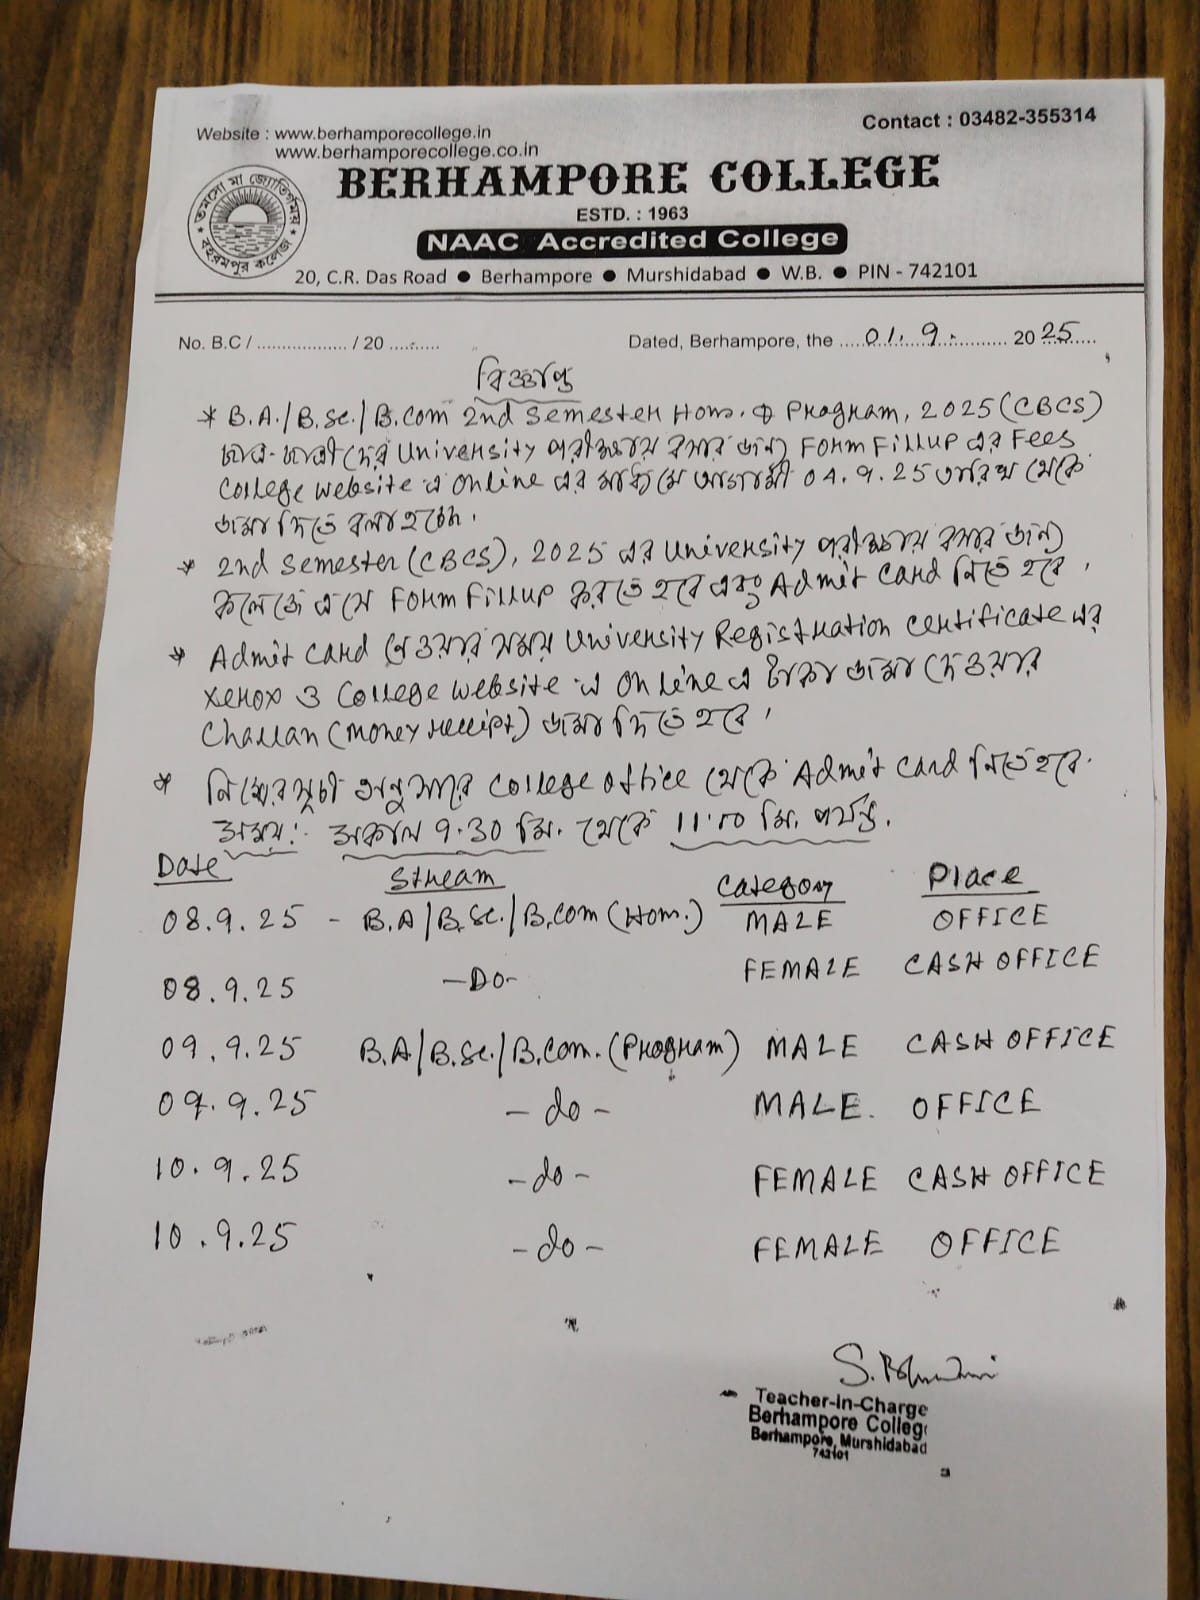 Website : www.berhamporecollege.in
www.berhamporecollege.co.in
Contact : 03482-355314
তমসো মা জ্যোতির্গময়
বহরমপুর কলেজ
BERHAMPORE COLLEGE
ESTD. : 1963
NAAC Accredited College
20, C.R. Das Road ● Berhampore ● Murshidabad ● W.B. ● PIN - 742101
No. B.C / .................. / 20 ..........
Dated, Berhampore, the .....01.9............ 20 25.....
বিজ্ঞপ্তি
* B.A./B.Sc./B.Com 2nd Semester Hons. & Program, 2025 (CBCS)
ছাত্র-ছাত্রীদের University পরীক্ষায় বসার জন্য Form Fillup এর Fees
College website এ online এর মাধ্যমে আগামী 04.9.25 তারিখ থেকে
জমা দিতে বলা হচ্ছে।
* 2nd Semester (CBCS), 2025 এর University পরীক্ষায় বসার জন্য
কলেজে এসে Form Fillup করতে হবে এবং Admit Card নিতে হবে।
* Admit Card নেওয়ার সময় University Registration Certificate এর
Xerox ও College website এ Online এ টাকা জমা দেওয়ার
Challan (Money receipt) জমা দিতে হবে।
* নিম্নের সূচী অনুসারে College office থেকে Admit Card নিতে হবে.
সময়:- সকাল 9.30 মি. থেকে 11:00 মি. পর্যন্ত.
Date Stream Category Place
08.9.25 - B.A/B.Sc./B.Com (Hons.) MALE OFFICE
08.9.25 -Do- FEMALE CASH OFFICE
09.9.25 B.A/B.Sc./B.Com. (Program) MALE CASH OFFICE
09.9.25 -do- MALE. OFFICE
10.9.25 -do- FEMALE CASH OFFICE
10.9.25 -do- FEMALE OFFICE
Teacher-in-Charge
Berhampore College
Berhampore, Murshidabad
742101